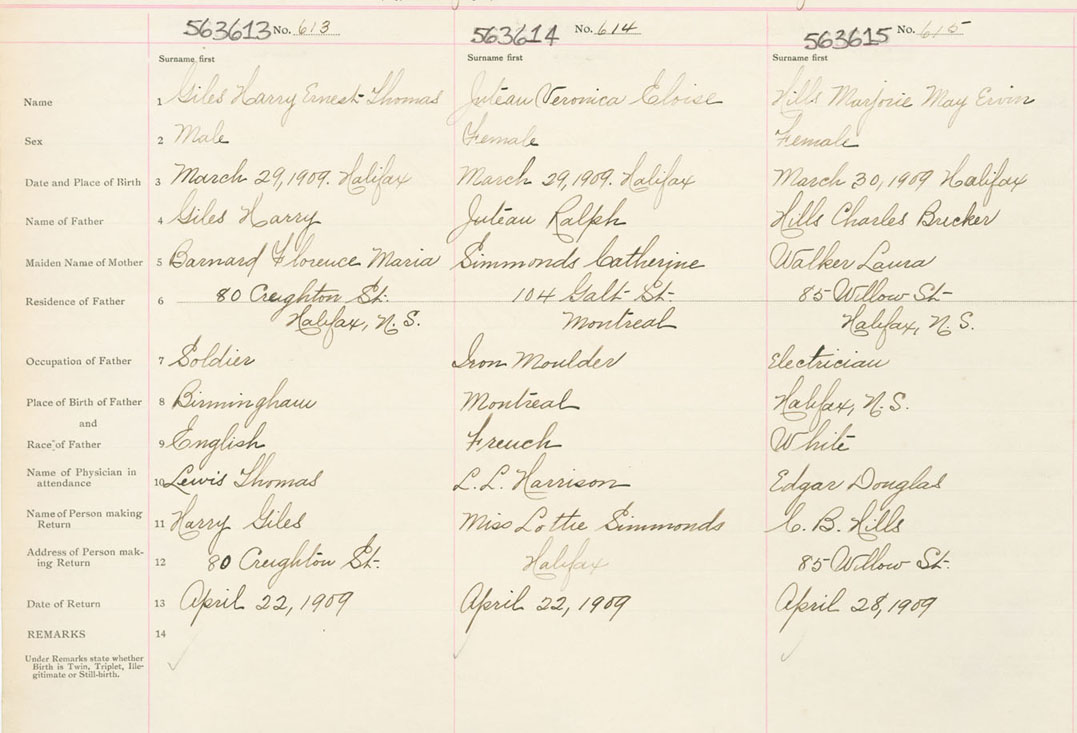 563613 No. 613 563614 No. 614 563615 No. 615
Surname first Surname first Surname first
Name 1 Giles Harry Ernest Thomas Juteau Veronica Eloise Hills Marjorie May Ervin
Sex 2 Male Female Female
Date and Place of Birth 3 March 29, 1909. Halifax March 29, 1909. Halifax March 30, 1909 Halifax
Name of Father 4 Giles Harry Juteau Ralph Hills Charles Bricker
Maiden Name of Mother 5 Barnard Florence Maria Simmonds Catherine Walker Laura
Residence of Father 6 80 Creighton St. 104 Galt St. 85 Willow St.
Halifax, N.S. Montreal Halifax, N.S.
Occupation of Father 7 Soldier Iron Moulder Electrician
Place of Birth of Father 8 Birmingham Montreal Halifax, N.S.
and
Race of Father 9 English French White
Name of Physician in
attendance 10 Lewis Thomas L. L. Harrison Edgar Douglas
Name of Person making
Return 11 Harry Giles Miss Lottie Simmonds C. B. Hills
Address of Person mak-
ing Return 12 80 Creighton St. Halifax 85 Willow St.
Date of Return 13 April 22, 1909 April 22, 1909 April 28, 1909
REMARKS 14
Under Remarks state whether
Birth is Twin, Triplet, Ille-
gitimate or Still-birth.